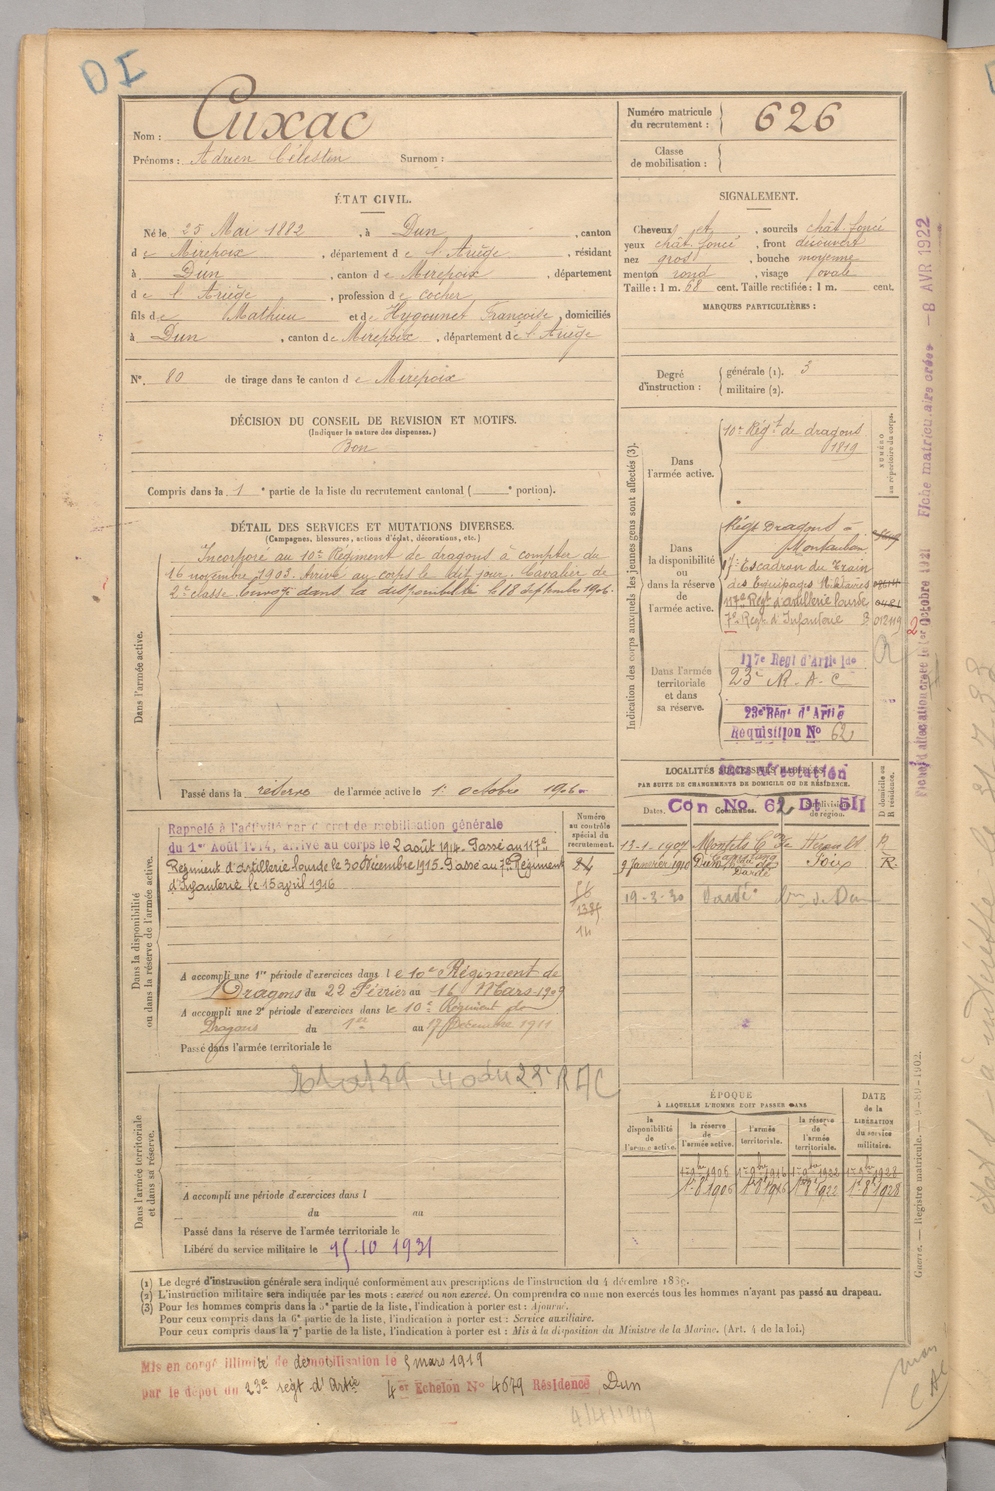 DI
Nom : Cuxac
Prénoms : Adrien Célestin Surnom :
Numéro matricule du recrutement : 626
Classe de mobilisation :
ÉTAT CIVIL.
Né le 25 Mai 1882, à Dun, canton
de Mirepoix, département de l'Ariège, résidant
à Dun, canton de Mirepoix, département
de l'Ariège, profession de cocher
fils de Mathieu et de Hygounet Françoise, domiciliés
à Dun, canton de Mirepoix, département de l'Ariège
N° 80 de tirage dans le canton de Mirepoix
SIGNALEMENT.
Cheveux, sourcils chât foncé
yeux chât foncé, front découvert
nez gros, bouche moyenne
menton rond, visage ovale
Taille : 1 m. 68 cent. Taille rectifiée : 1 m. cent.
MARQUES PARTICULIÈRES :
Degré d'instruction : générale (1). 3
militaire (2).
DÉCISION DU CONSEIL DE REVISION ET MOTIFS.
(Indiquer la nature des dispenses.)
Bon
Compris dans la 1e partie de la liste du recrutement cantonal ( e portion).
DÉTAIL DES SERVICES ET MUTATIONS DIVERSES.
(Campagnes, blessures, actions d'éclat, décorations, etc.)
Dans l'armée active.
Incorporé au 10e Régiment de dragons à compter du
16 novembre 1903. Arrivé au corps le dit jour. Cavalier de
2e classe. Envoyé dans la disponibilité le 18 septembre 1906.
Passé dans la réserve de l'armée active le 1er octobre 1906
Indication des corps auxquels les jeunes gens sont affectés (3).
NUMÉRO au répertoire du corps.
Dans l'armée active.
10e Régt de dragons
1819
Dans la disponibilité ou dans la réserve de l'armée active.
Régt Dragons à
Montauban
17e Escadron du Train
des Equipages Militaires
117e Régt d'artillerie lourde
7e Régt d'Infanterie 012119
Dans l'armée territoriale et dans sa réserve.
117e Regt d'Artie lde
23e R.A.C
23e Régt d'Artie
Réquisition No 62
Fiche matriculaire créée -8 AVR 1922
LOCALITÉS SUCCESSIVES HABITÉES
PAR SUITE DE CHANGEMENTS DE DOMICILE OU DE RÉSIDENCE.
Con No 62 Dt 511
Dates. Communes. Subdivision de région.
D domicile ou R résidence.
9 Janvier 1910 Dun Foix R.
19-3-30
Dans la disponibilité ou dans la réserve de l'armée active.
Numéro au contrôle spécial du recrutement.
Rappelé à l'activité par décret de mobilisation générale
du 1er Août 1914, arrivé au corps le 2 août 1914. Passé au 117e
Régiment d'artillerie lourde le 30 Décembre 1915. Passé au 7e Régiment
d'Infanterie le 15 avril 1916
A accompli une 1re période d'exercices dans le 10e Régiment de
Dragons du 22 Février au 16 Mars 1909
A accompli une 2e période d'exercices dans le 10e Régiment de
Dragons du 1er au 17 Décembre 1911
Passé dans l'armée territoriale le
Dans l'armée territoriale et dans sa réserve.
A accompli une période d'exercices dans l
du au
Passé dans la réserve de l'armée territoriale le
Libéré du service militaire le 15.10 1931
ÉPOQUE
À LAQUELLE L'HOMME DOIT PASSER DANS
la disponibilité de l'armée active.
la réserve de l'armée active.
l'armée territoriale.
la réserve de l'armée territoriale.
DATE de la LIBÉRATION du service militaire.
1er 8e 1906 1er 8e 1916 1er 8e 1922 1er 8e 1928
Guerre. — Registre matricule.
(1) Le degré d'instruction générale sera indiqué conformément aux prescriptions de l'instruction du 4 décembre 1889.
(2) L'instruction militaire sera indiquée par les mots : exercé ou non exercé. On comprendra comme non exercés tous les hommes n'ayant pas passé au drapeau.
(3) Pour les hommes compris dans la 5e partie de la liste, l'indication à porter est : Ajourné.
Pour ceux compris dans la 6e partie de la liste, l'indication à porter est : Service auxiliaire.
Pour ceux compris dans la 7e partie de la liste, l'indication à porter est : Mis à la disposition du Ministre de la Marine. (Art. 4 de la loi.)
Mis en congé illimité de démobilisation le 5 mars 1919
par le dépôt du 23e régt d'Artie 4er Echelon No 4679 Résidence Dun